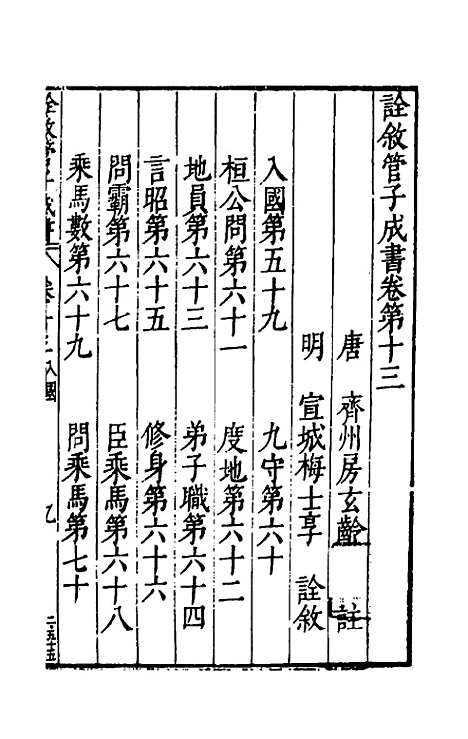 詮敘管子成書卷第十三
唐 齊州房玄齡 註
明 宣城梅士享 詮敘
入國第五十九 九守第六十
桓公問第六十一 度地第六十二
地員第六十三 弟子職第六十四
言昭第六十五 修身第六十六
問霸第六十七 臣乘馬第六十八
乘馬數第六十九 問乘馬第七十
卷十三 入國